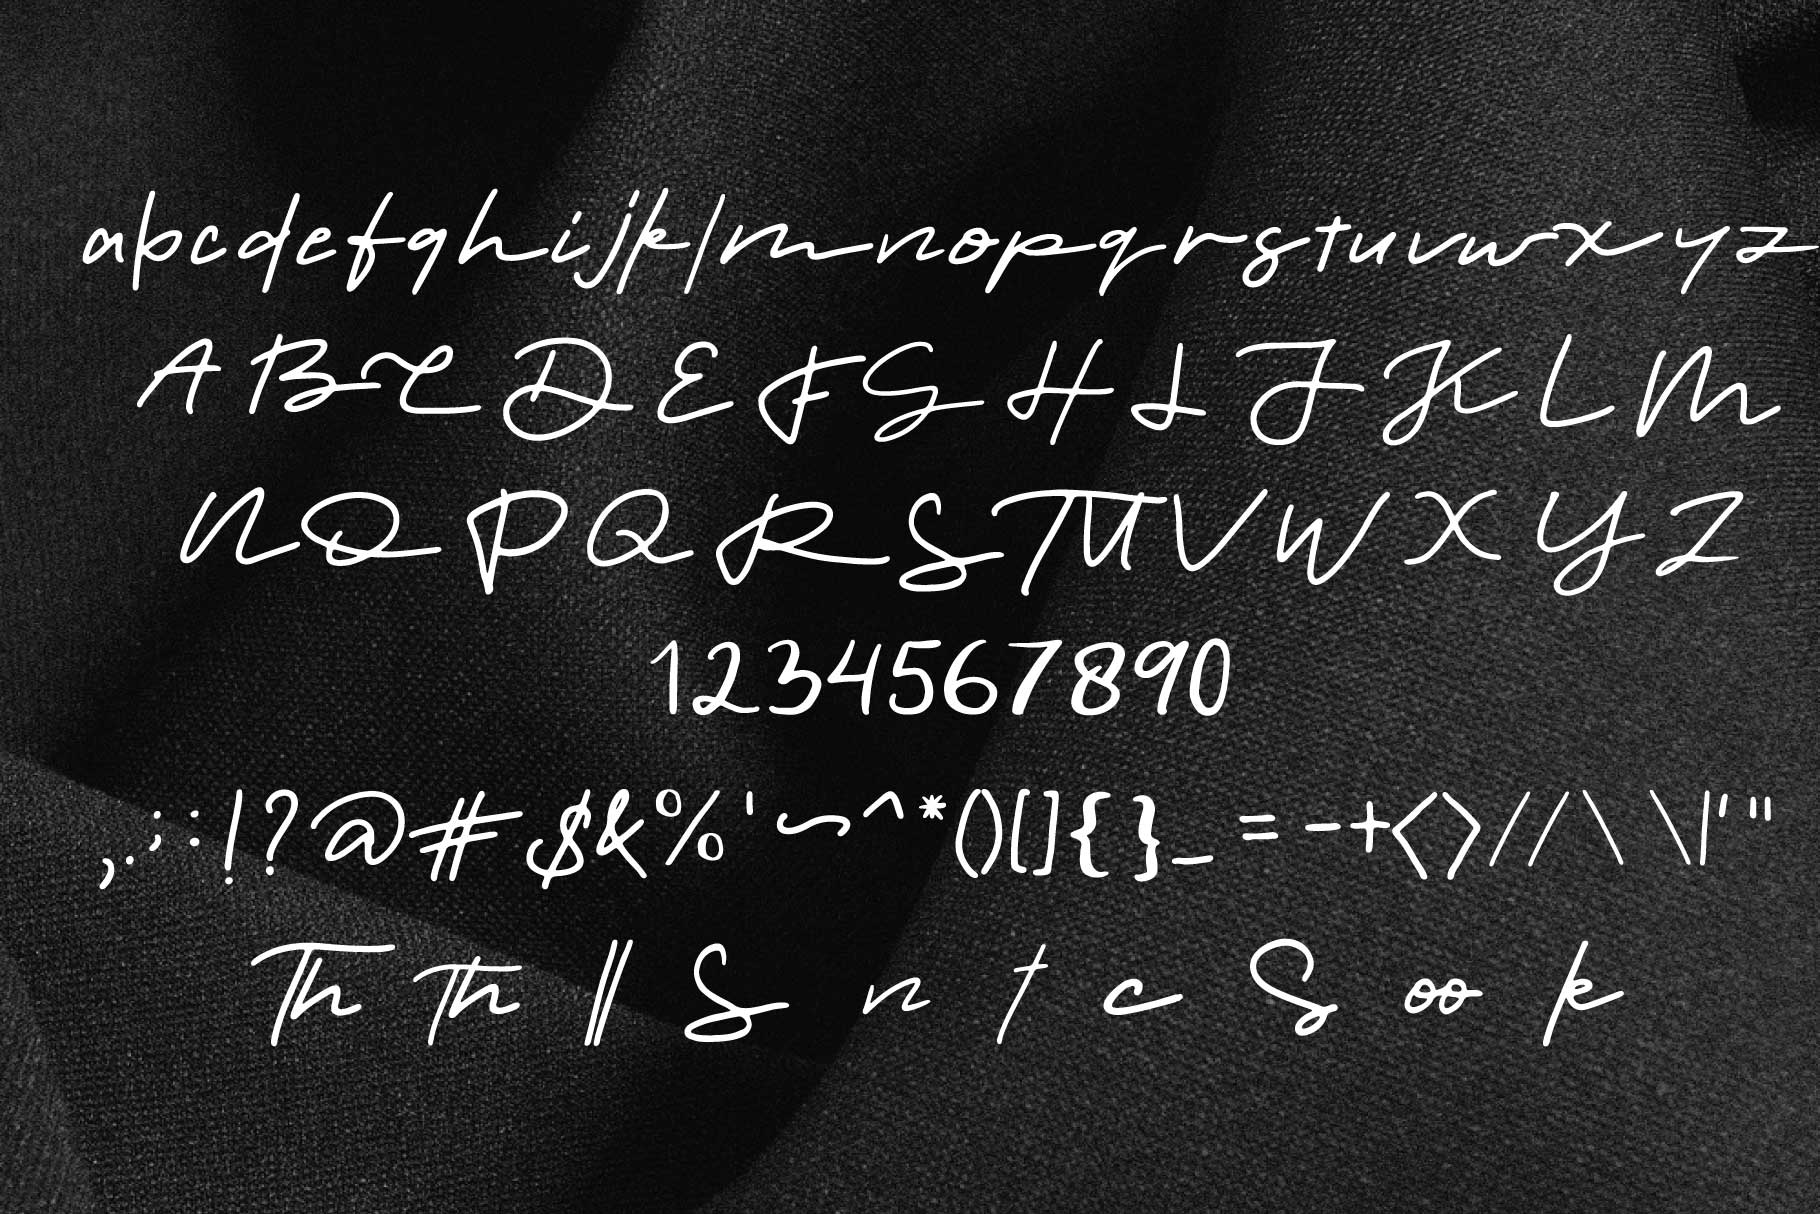 abcdefghijklmnopqrstuvwxyz
ABCDEFGHIJKLM
NOPQRSTUVWXYZ
1234567890
,.;:!?@#$&%'~^*()[]{}_=-+<>//\\|'"
Th Th ll S n t c S oo k